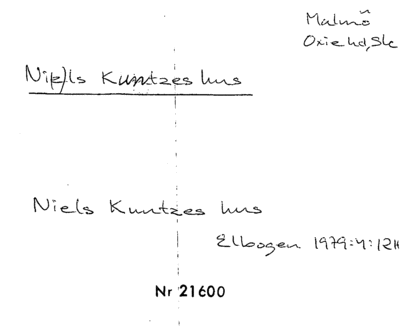 Malmö
Oxie hd, Sk
Ni(e)ls Kuntzes hus
Niels Kuntzes hus
Elbogen 1979:4:12H
Nr 21600